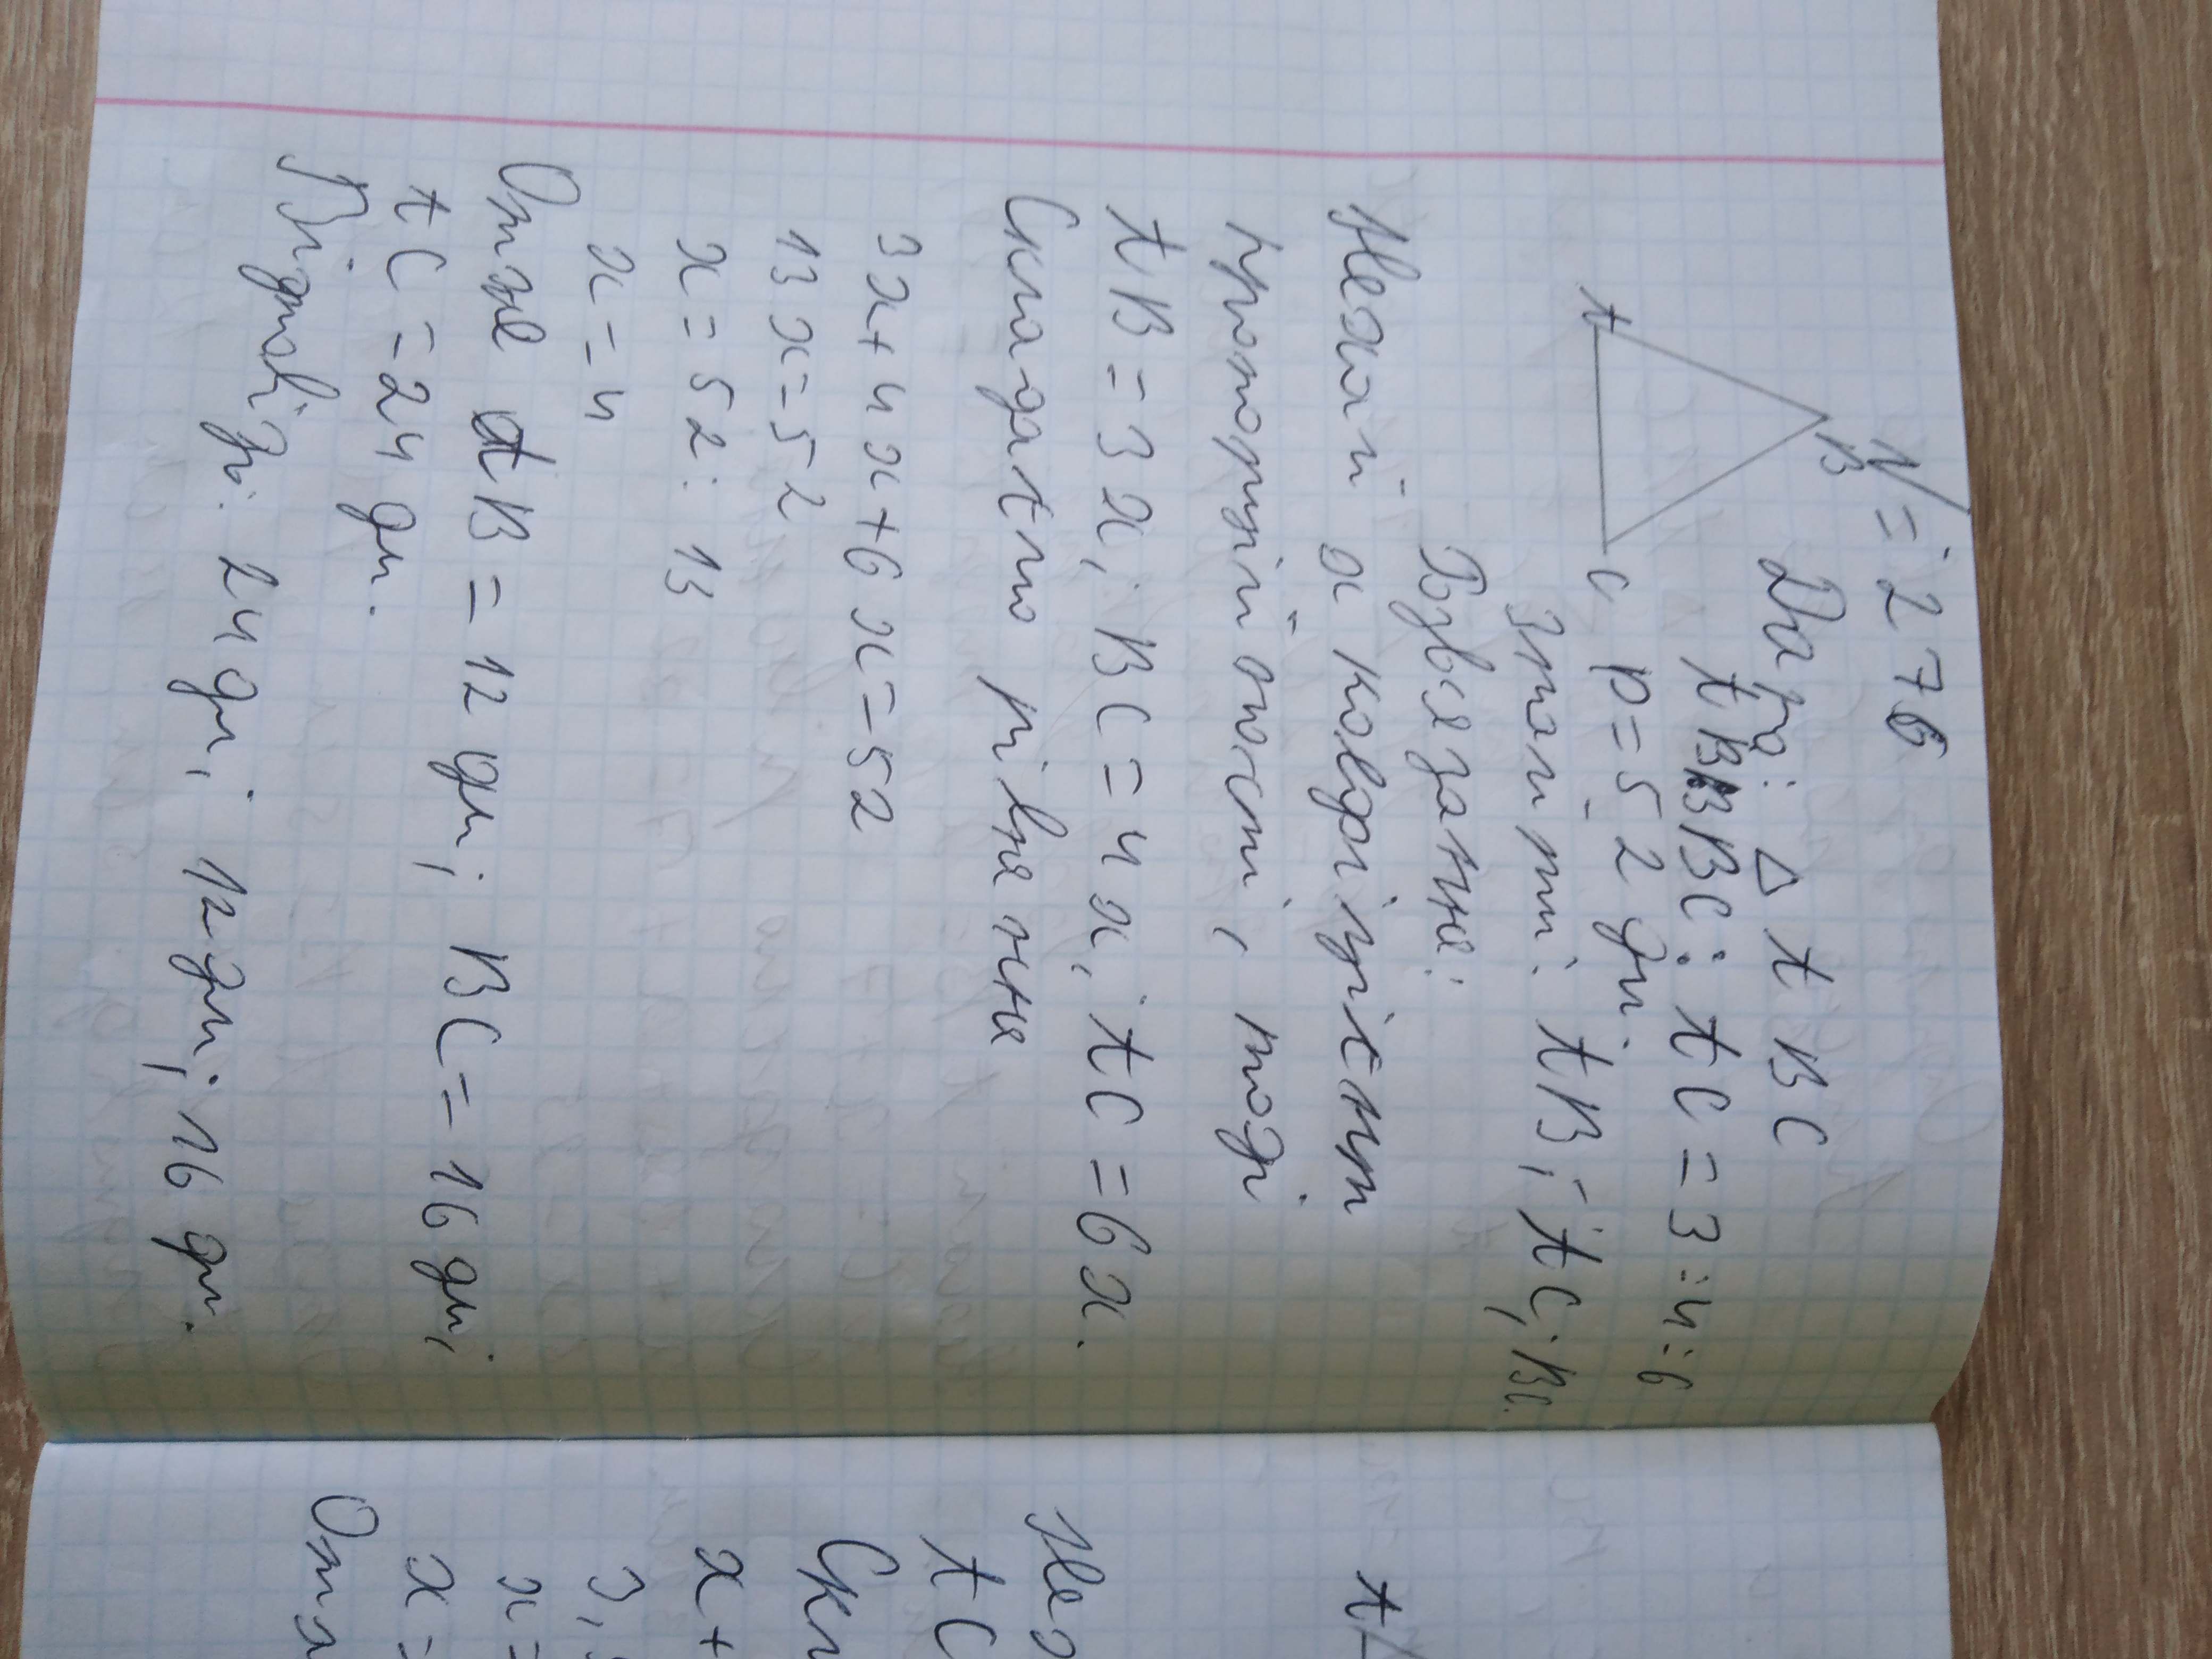 № 276
B
A
C
Дано: △ ABC
AB:BC:AC=3:4:6
P=52 дм.
Знайти: AB; AC; BC.
Розв'язання:
Нехай x коефіцієнт
пропорційності, тоді
AB=3x, BC=4x, AC=6x.
Складемо рівняння
3x+4x+6x=52
13x=52
x=52:13
x=4
Отже AB=12 дм; BC=16 дм;
AC=24 дм.
Відповідь: 24 дм; 12 дм; 16 дм.
A
AC
x+
x=
x=